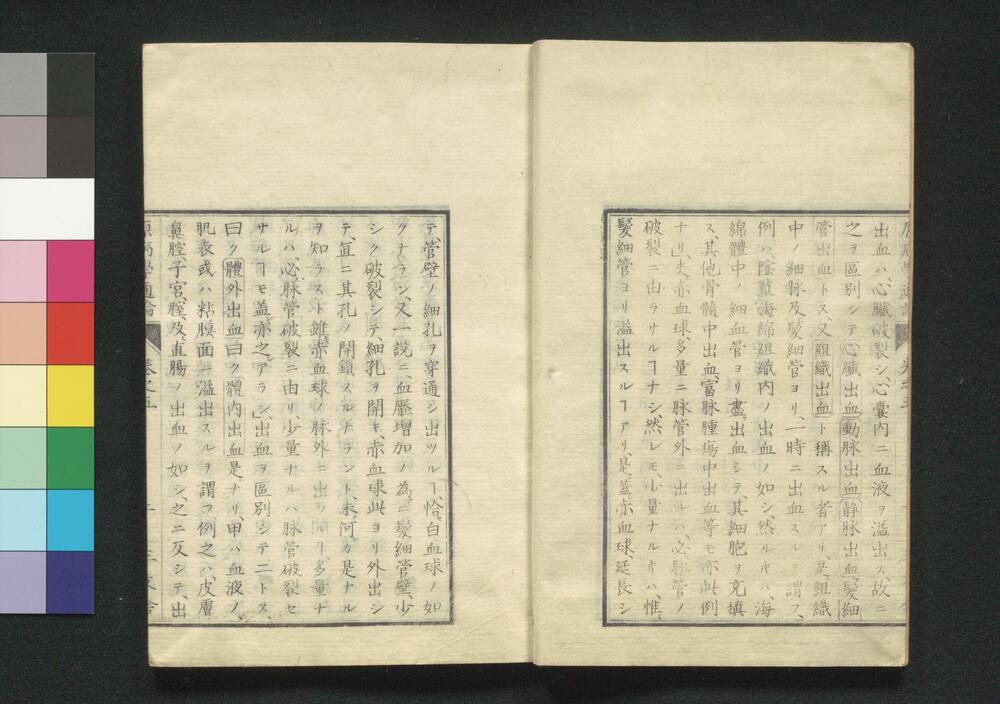 出血ハ、心臓破裂シ、心囊内ニ血液ヲ溢出ス故ニ
之ヲ區別シテ、心臓出血動脉出血静脉出血髮細
管出血トス、又組織出血ト稱スル者アリ、是組織
中ノ細脉及髮細管ヨリ、一時ニ出血スルヲ謂フ、
例ハ陰莖海綿組織内ノ出血ノ如シ、然ルキハ、海
綿體中ノ細血管ヨリ盡出血シテ、其細胞ヲ充填
ス、其他骨髓中出血、富脉腫瘍中出血等モ亦此例
ナリ」、夫赤血球、多量ニ脉管外ニ出ルハ、必脉管ノ
破裂ニ由ラサルヿナシ、然レモ少量ナルキハ、惟、
髮細管ヨリ溢出スルヿアリ、是蓋赤血球、延長シ
テ、管壁ノ細孔ヲ穿通シ出ツルヿ、恰白血球ノ如
クナラン、又一説ニ、血壓増加ノ為ニ髮細管壁、少
シク破裂シテ、細孔ヲ開キ、赤血球此ヨリ外出シ
テ、直ニ其孔ノ閉鎖スルナラント、未何カ是ナル
ヲ知ラスト雖、赤血球ノ脉外ニ出ツルヿ多量ナ
ルハ、必脉管破裂ニ由リ、少量ナルハ脉管破裂セ
サルヿモ蓋亦之アラン」、出血ヲ區別シテ二トス、
曰ク體外出血曰ク體内出血是ナリ、甲ハ血液ノ、
肌表或ハ粘膜面ニ溢出スルヲ謂フ例之ハ、皮膚
鼻腔、子宮、膣、及直腸ノ出血ノ如シ、之ニ反シテ、出
原病學通論 卷之五